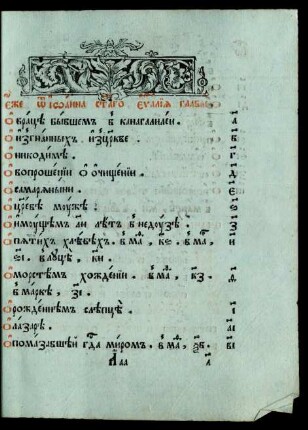 Е҆́же ѿ іѡа́нна ст҃а́го є҆ѵⷢ҇лїѧ главы̀
О҆ бра́цѣ бы́вшемъ в̾ ка́нагалиле́и. а҃
О҆ и҆згна́нныхъ и҆зцр҃кве. в҃
О҆ никоди́мѣ. г҃
О҆ вопроше́нїи ѡ҆ ѡ҆чище́нїи. д҃
О҆ самарѧны́ни. є҃
О҆ цр҃евѣ мꙋ́жѣ ѕ҃
О҆ и҆мꙋ́щемъ л҃и лѣ́тъ в̾недꙋ́зѣ. з҃
О҆ пѧти́хъ хлѣ́бѣхъ. и҃
О҆ морсте́мъ хожде́нїи. ѳ҃
в̾ма́рка, з҃і
О҆ рожде́ннемъ слѣ́пцѣ. і҃
О҆ ла́зарѣ. а҃і
О҆ пома́завшей гд҃а мѵ́ромъ. в҃і